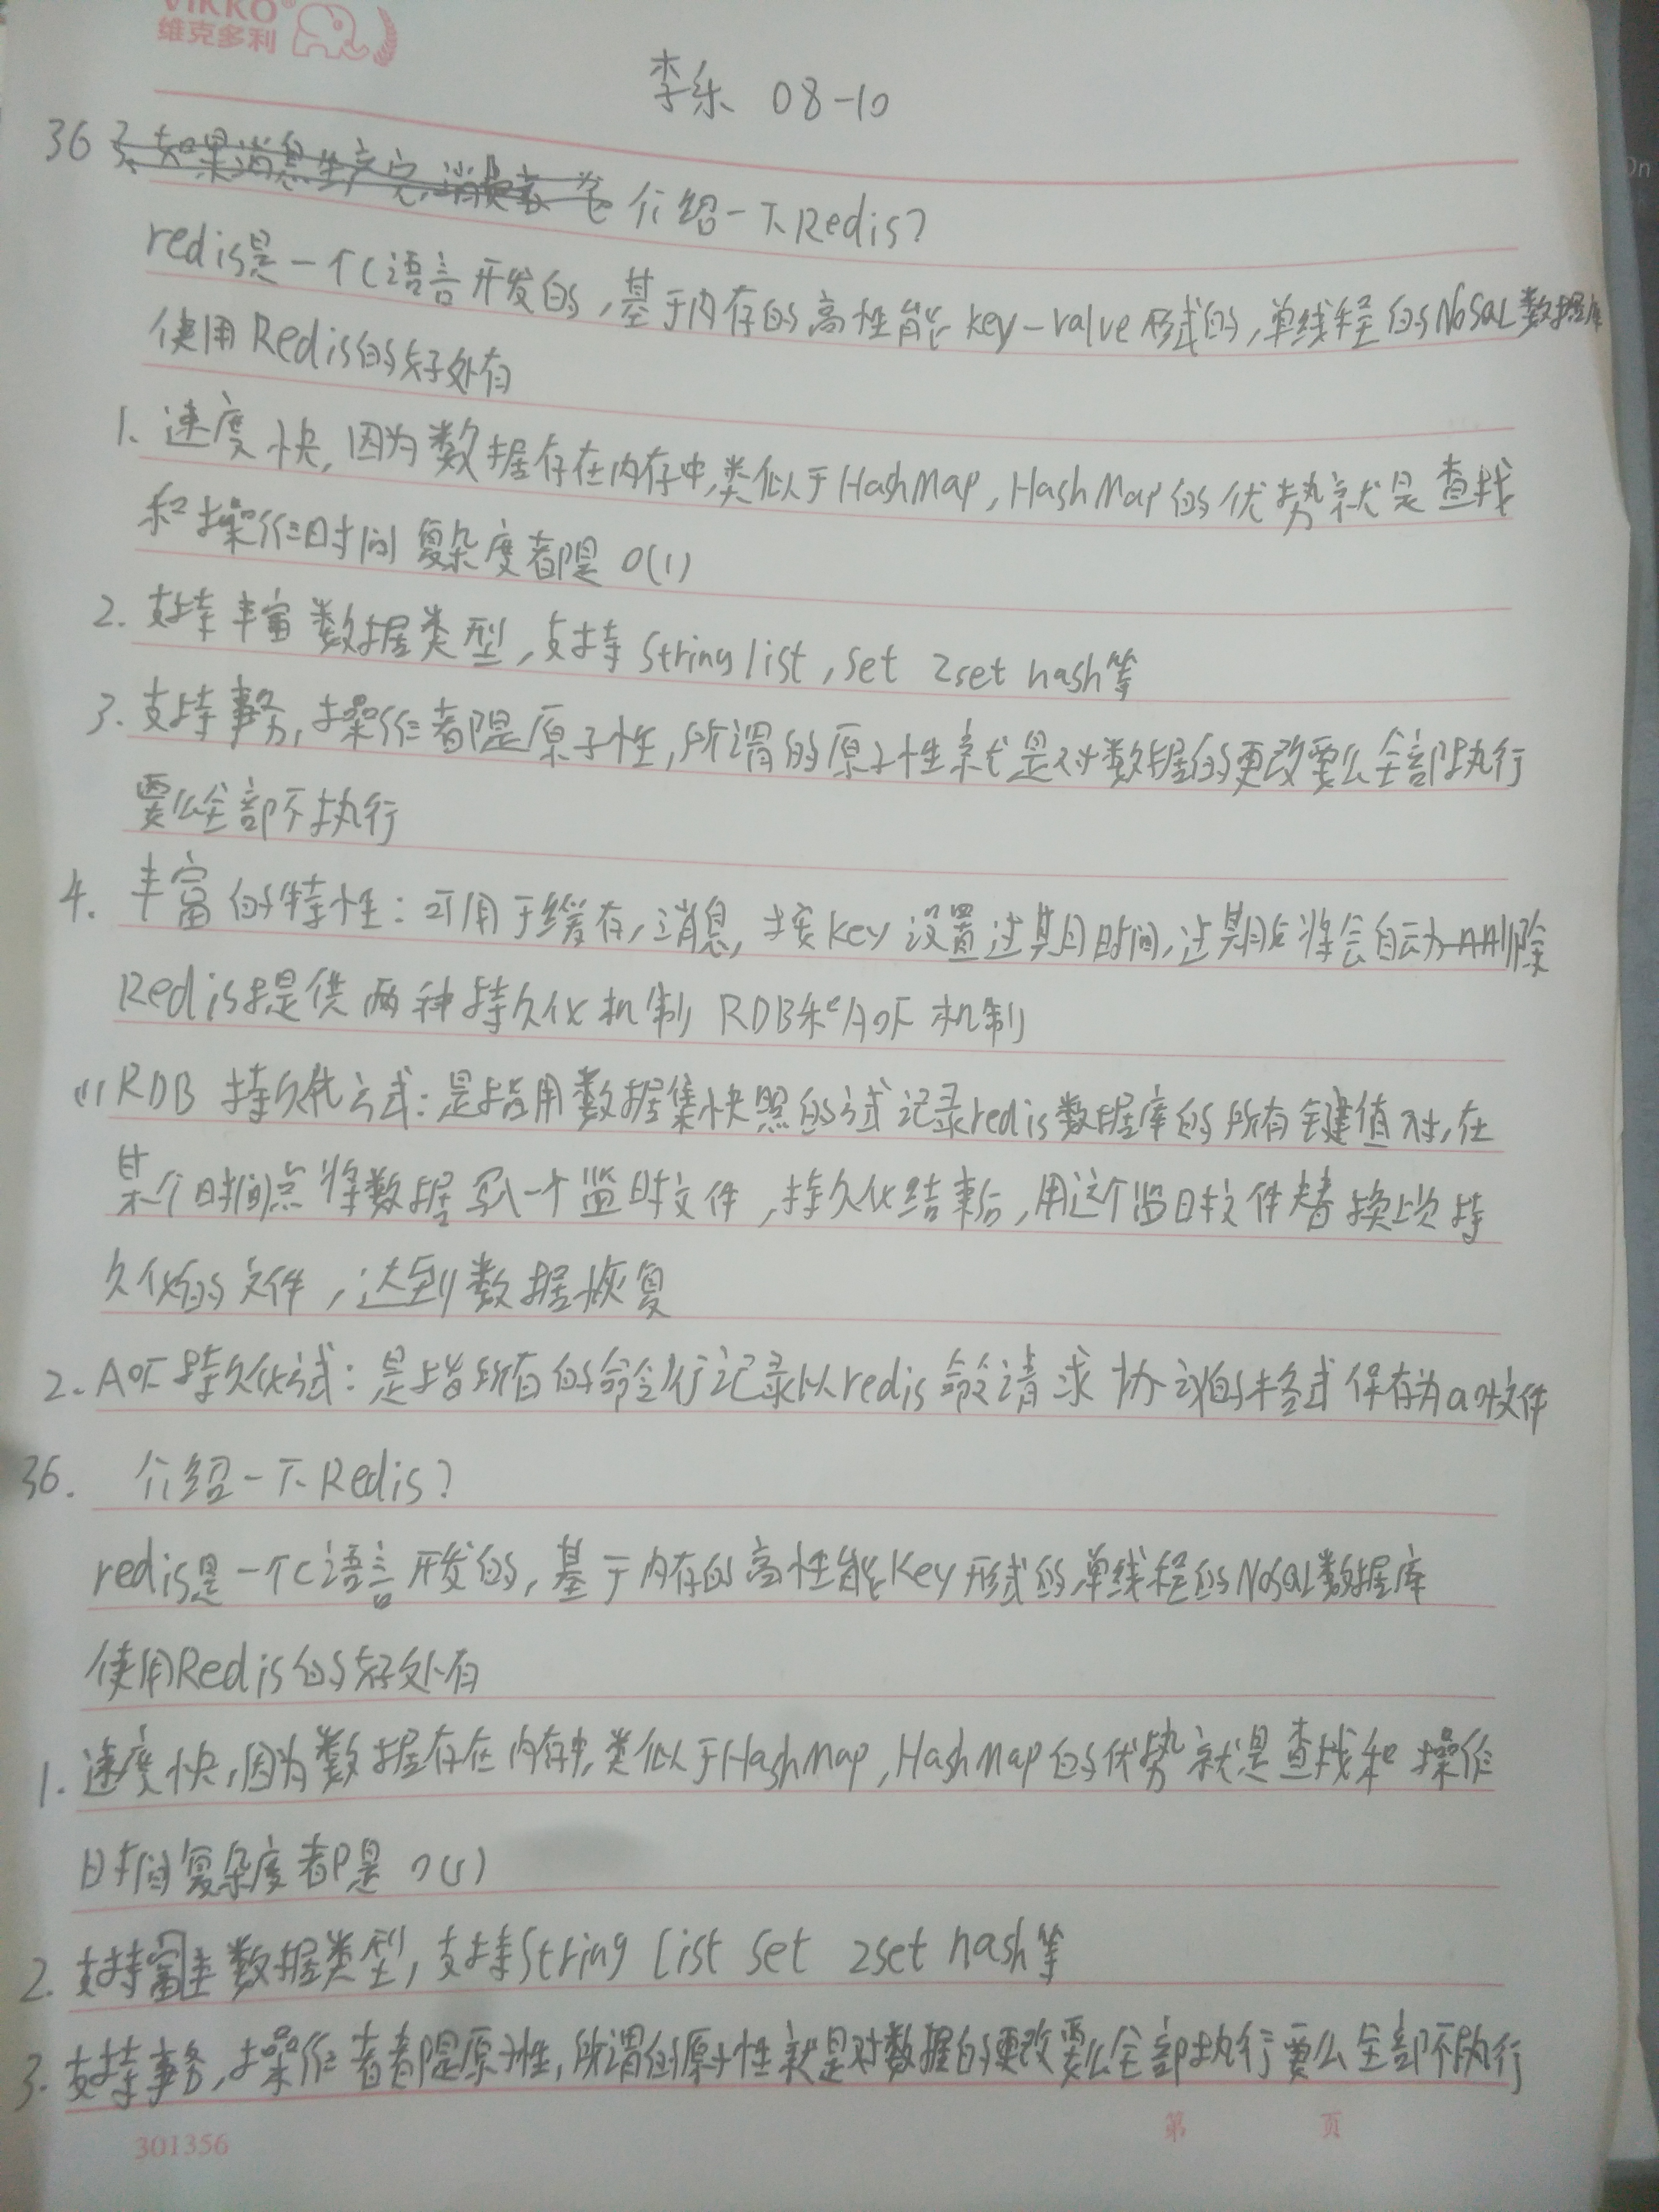 VIKKO®
维克多利
李乐 08-10
36 介绍一下Redis?
redis是一个C语言开发的,基于内存的高性能key-value形式的,单线程的NoSQL数据库
使用Redis的好处有
1、速度快,因为数据存在内存中,类似于HashMap,HashMap的优势就是查找
和操作时间复杂度都是 O(1)
2. 支持丰富数据类型,支持 String list,set zset hash等
3. 支持事务,操作都是原子性,所谓的原子性就是对数据的更改要么全部执行
要么全部不执行
4. 丰富的特性:可用于缓存,消息,按key设置过期时间,过期后将会自动删除
Redis提供两种持久化机制 RDB和AOF机制
(1) RDB 持久化方式:是指用数据集快照的方式记录redis数据库的所有键值对,在
某个时间点将数据写入一个临时文件,持久化结束后,用这个临时文件替换上次持
久化的文件,达到数据恢复
2. AOF持久化方式:是指所有的命令行记录以redis命令请求协议的格式保存为aof文件
36. 介绍一下Redis?
redis是一个C语言开发的,基于内存的高性能Key形式的,单线程的NoSQL数据库
使用Redis的好处有
1. 速度快,因为数据存在内存中,类似于HashMap,HashMap的优势就是查找和操作
时间复杂度都是 O(1)
2. 支持富丰数据类型,支持String list set zset hash等
3. 支持事务,操作者都是原子性,所谓的原子性就是对数据的更改要么全部执行要么全部不执行
301356 第 页